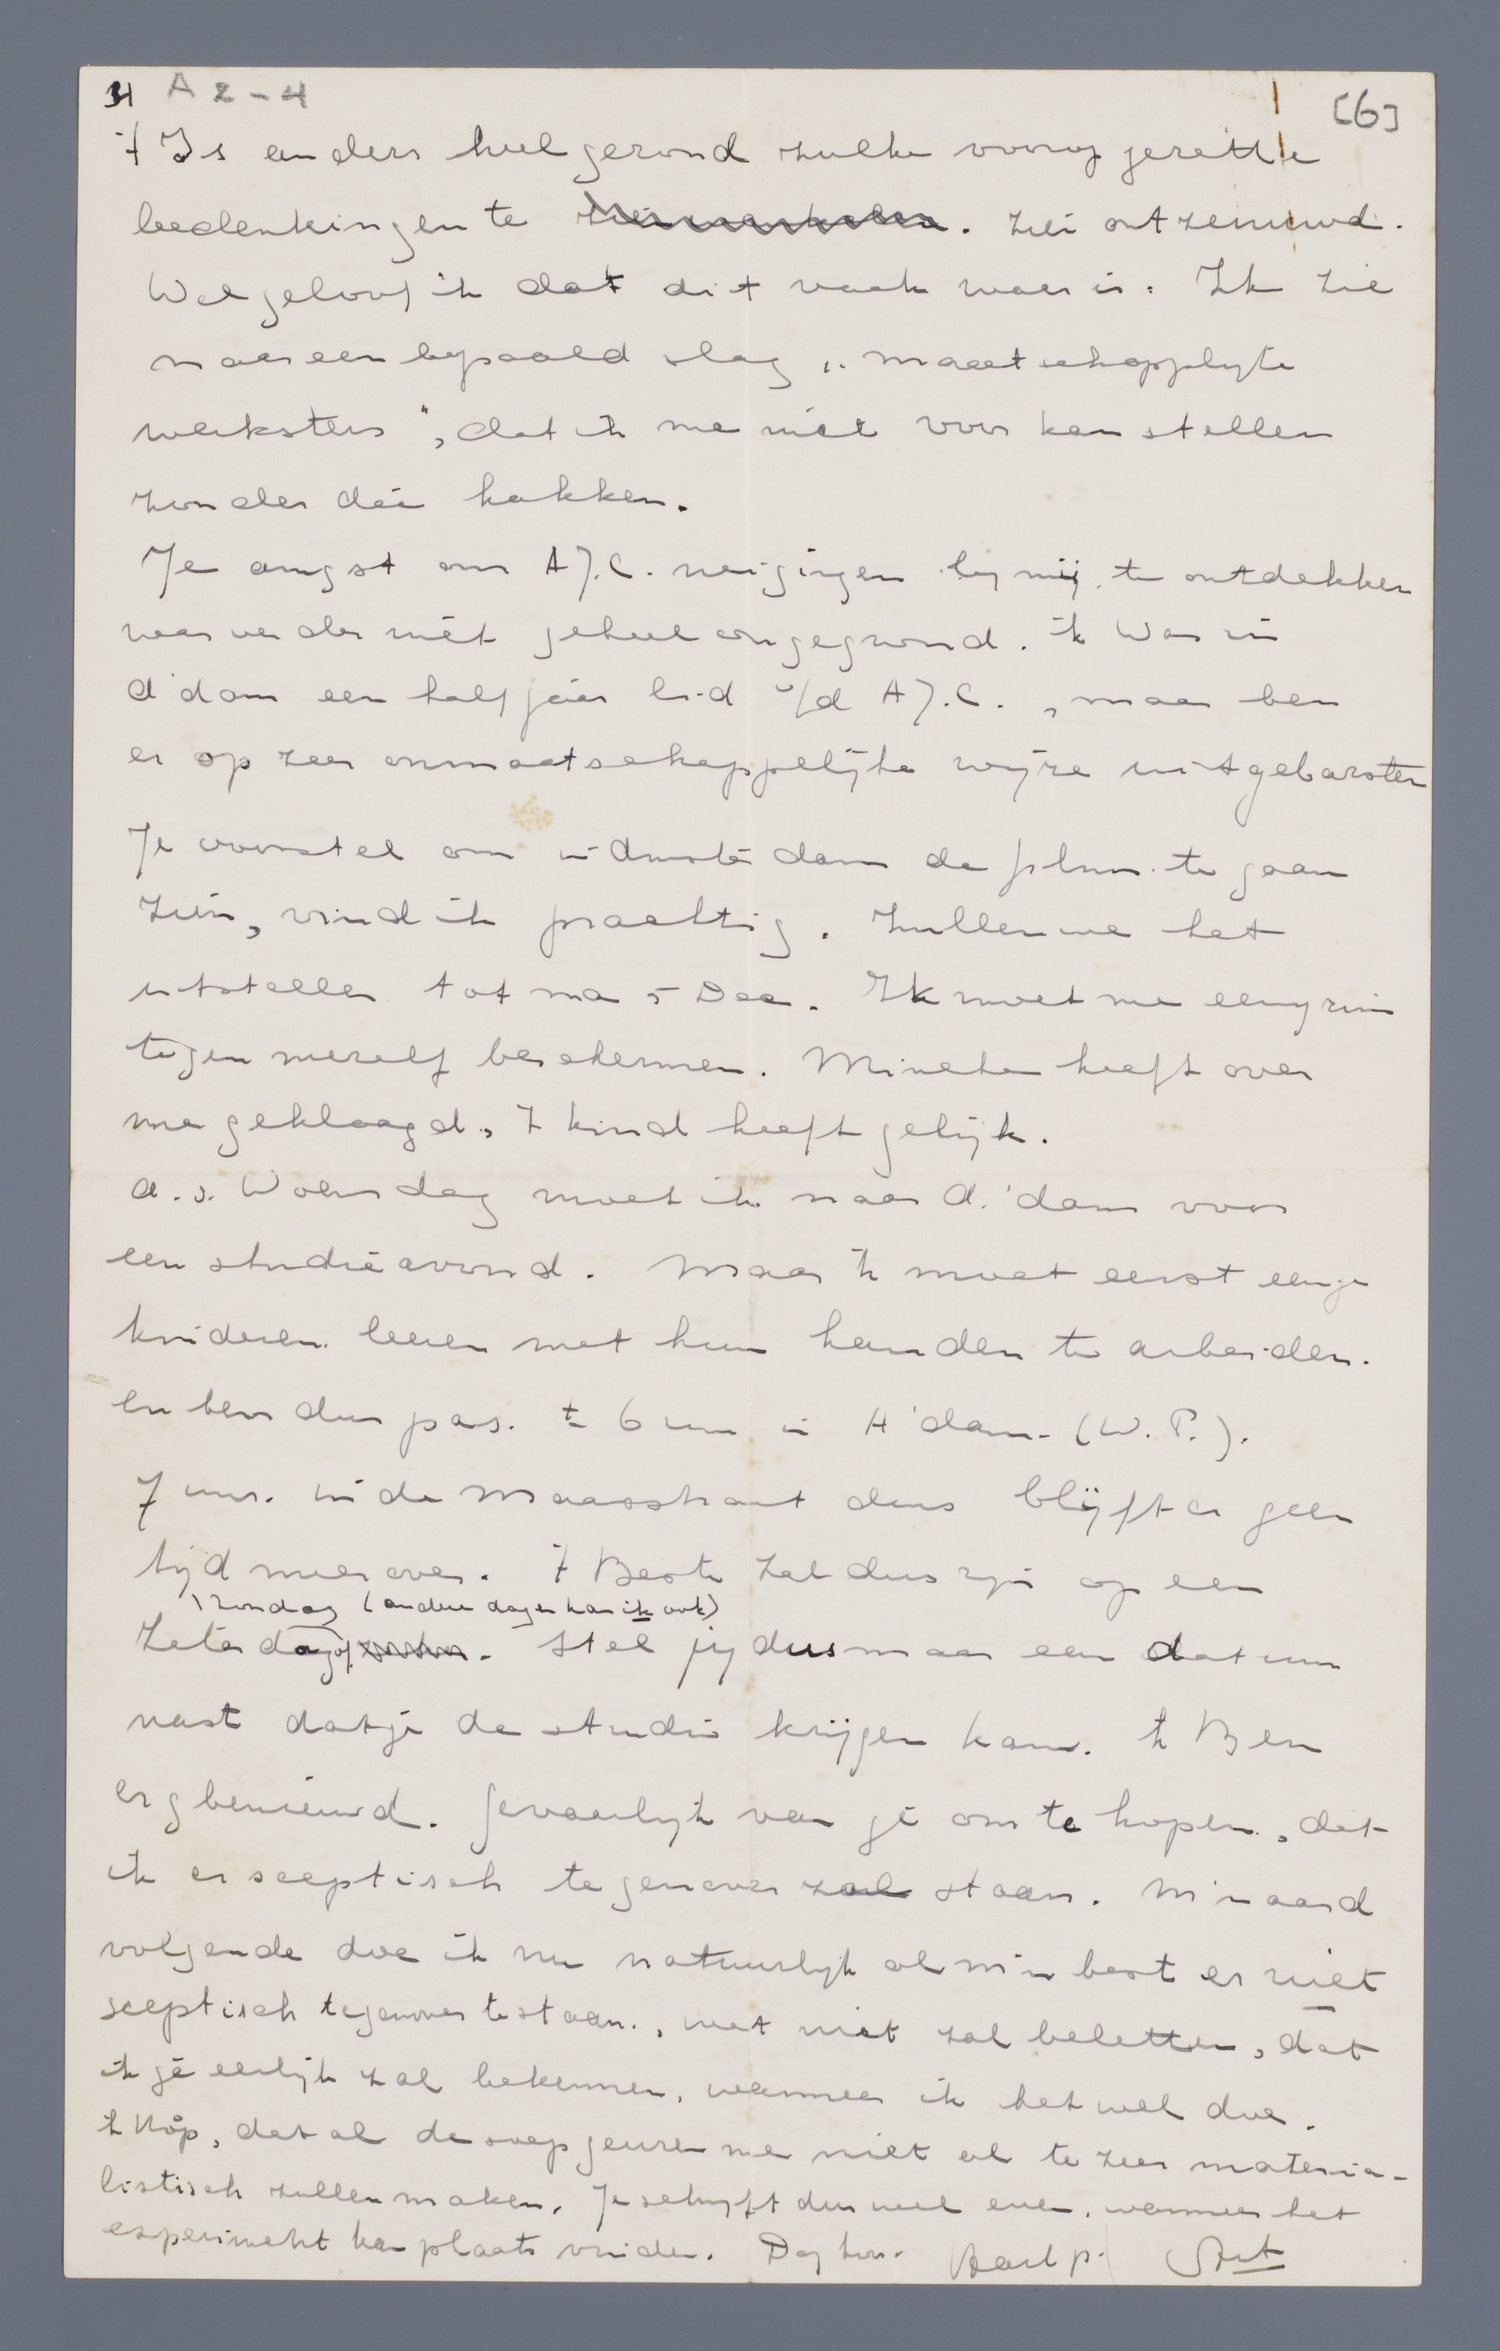 A 2 - 4
[6]
't Is anders heel gezond zulke vooropgezette
bedenkingen te zien ontzenuwd.
Wel geloof ik dat dit vaak waar is. Ik zie
naar een bepaald slag „maatschappelijke
werksters", dat ik me niet voor kan stellen
zonder die hakken.
Je angst om A.J.C. neigingen bij mij te ontdekken
was verder niet geheel ongegrond. ik was in
A'dam een half jaar lid v/d A.J.C., maar ben
er op zeer onmaatschappelijke wijze uitgebarsten
Je voorstel om in Amsterdam de film te gaan
zien, vind ik prachtig. Zullen we het
uitstellen tot na 5 Dec. Ik moet me eenigzins
tegen mezelf beschermen. Mineke heeft over
me geklaagd, 't kind heeft gelijk.
a.s. Woensdag moet ik naar A.'dam voor
een studieavond. Maar ik moet eerst eenige
kinderen leeren met hun handen te arbeiden.
en ben dus pas ± 6 uur in A'dam. (W.P.).
7 uur in de Maasstraat dus blijft er geen
tijd meer over. 't Beste zal dus zijn op een
Zondag (andere dagen kan ik ook)
Zaterdag of. Stel jij dus maar een datum
vast dat je de studio krijgen kan. 'k Ben
erg benieuwd. Gevaarlijk van je om te hopen, dat
ik er sceptisch tegenover zal staan. M'n aard
volgende doe ik nu natuurlijk al m'n best er niet
sceptisch tegenover te staan, wat niet zal beletten, dat
ik je eerlijk zal bekennen, wanneer ik het wel doe.
'k Hoop, dat al de soepgeuren me niet al te zeer materia-
listisch zullen maken. Je schrijft dus wel even, wanneer het
experiment kan plaats vinden. Dag hoor.